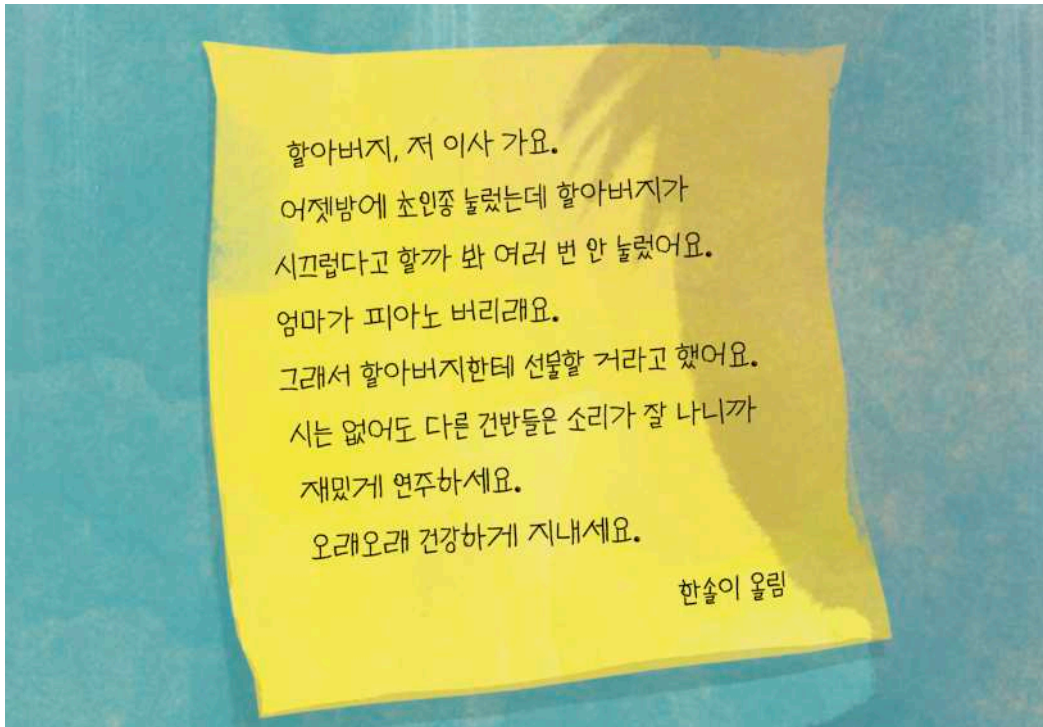 할아버지, 저 이사 가요.
어젯밤에 초인종 눌렀는데 할아버지가
시끄럽다고 할까 봐 여러 번 안 눌렀어요.
엄마가 피아노 버리래요.
그래서 할아버지한테 선물할 거라고 했어요.
시는 없어도 다른 건반들은 소리가 잘 나니까
재밌게 연주하세요.
오래오래 건강하게 지내세요.
한솔이 올림